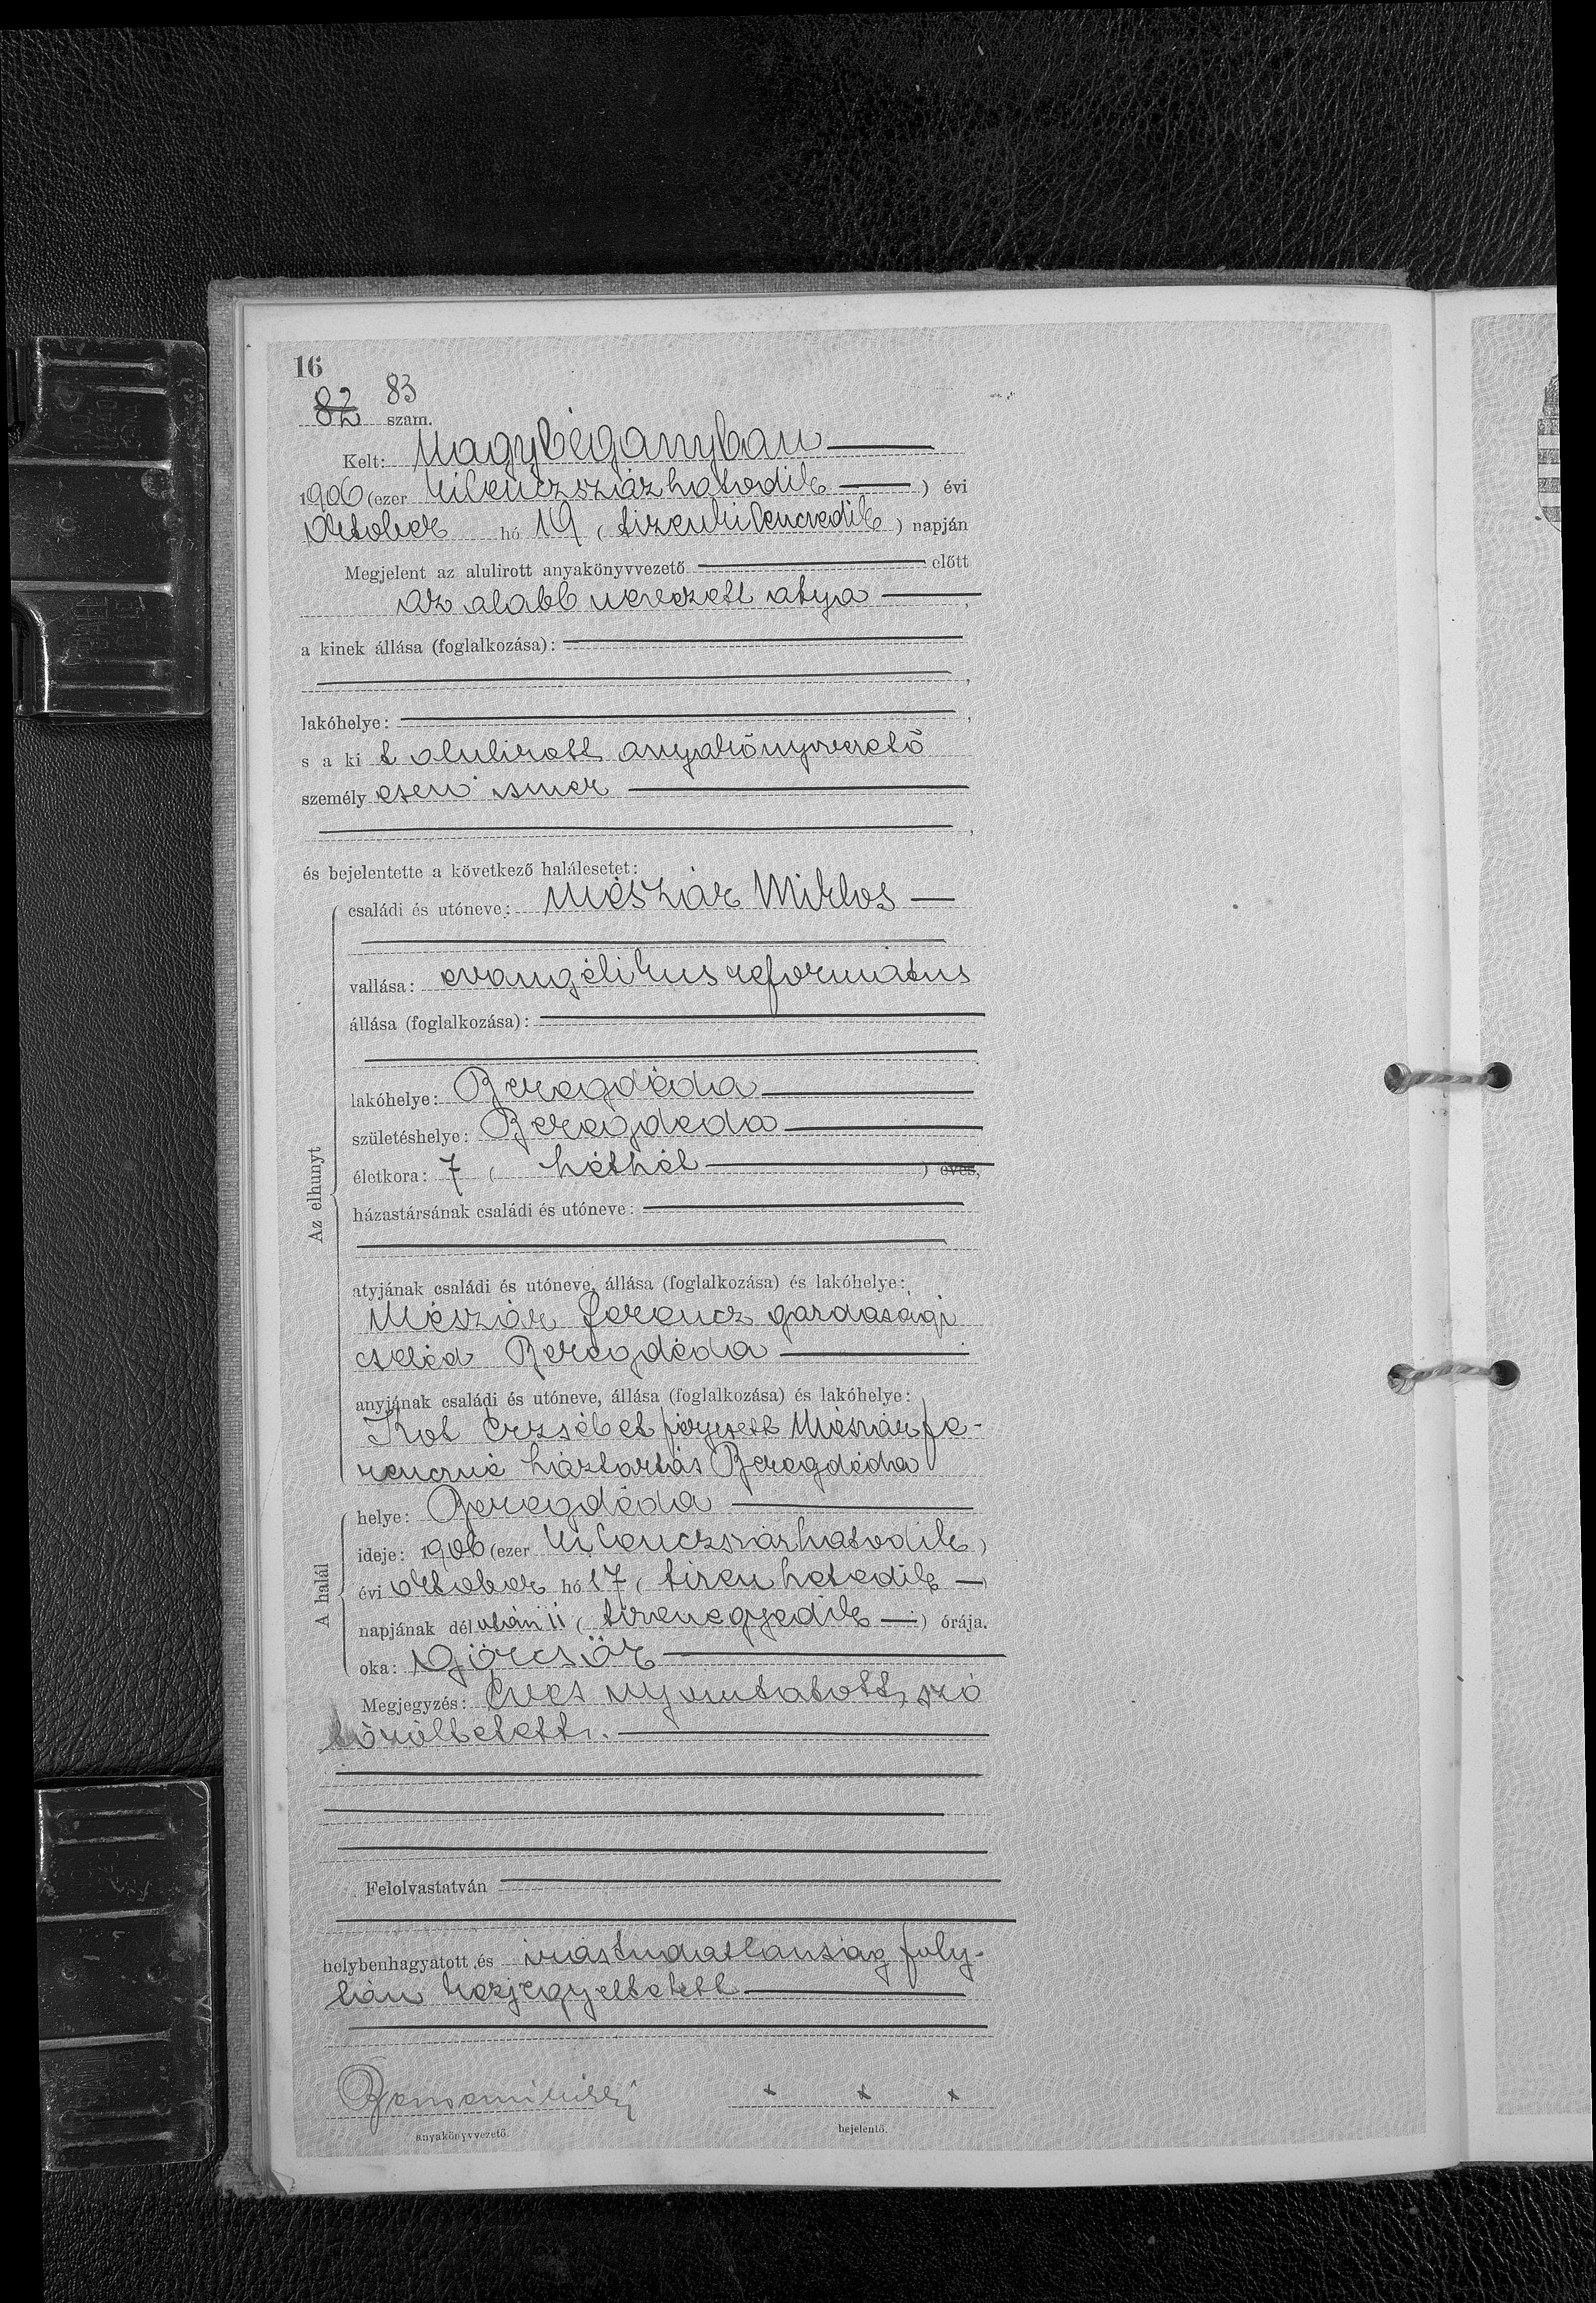 16
82 83
szám.
Kelt: Nagybégányban
1906 (ezer kilenczszázhatodik ) évi
október hó 19 ( tizenkilenczedik ) napján
Megjelent az alulirott anyakönyvvezető előtt
az alább nevezett atya ,
a kinek állása (foglalkozása):
,
lakóhelye: ,
s a ki t alulirott anyakönyvvezető
személy esen ismer
,
és bejelentette a következő halálesetet:
Az elhunyt
családi és utóneve: Mészár Miklos
vallása: evangélikus református
állása (foglalkozása):
lakóhelye: Beregdéda
születéshelye: Beregdeda
életkora: 7 ( héthét ) éves,
házastársának családi és utóneve:
atyjának családi és utóneve, állása (foglalkozása) és lakóhelye:
Mészár Ferencz gazdasági
cseléd Beregdéda
anyjának családi és utóneve, állása (foglalkozása) és lakóhelye:
Kot Erzsébet férjezett Mészár Fe-
rencné háztartás Beregdéda
A halál
helye: Beregdéda
ideje: 1906 (ezer kilenczszázhatodik )
évi október hó 17 ( tizenhetedik )
napjának dél után 11 ( tizenegyedik ) órája.
oka: Görcsör
Megjegyzés: Éves nyomtatott szó
töröltetett.
Felolvastatván
helybenhagyatott és irástudatlanság foly-
tán kézjegyeltetett
x x x
anyakönyvvezető.
bejelentő.